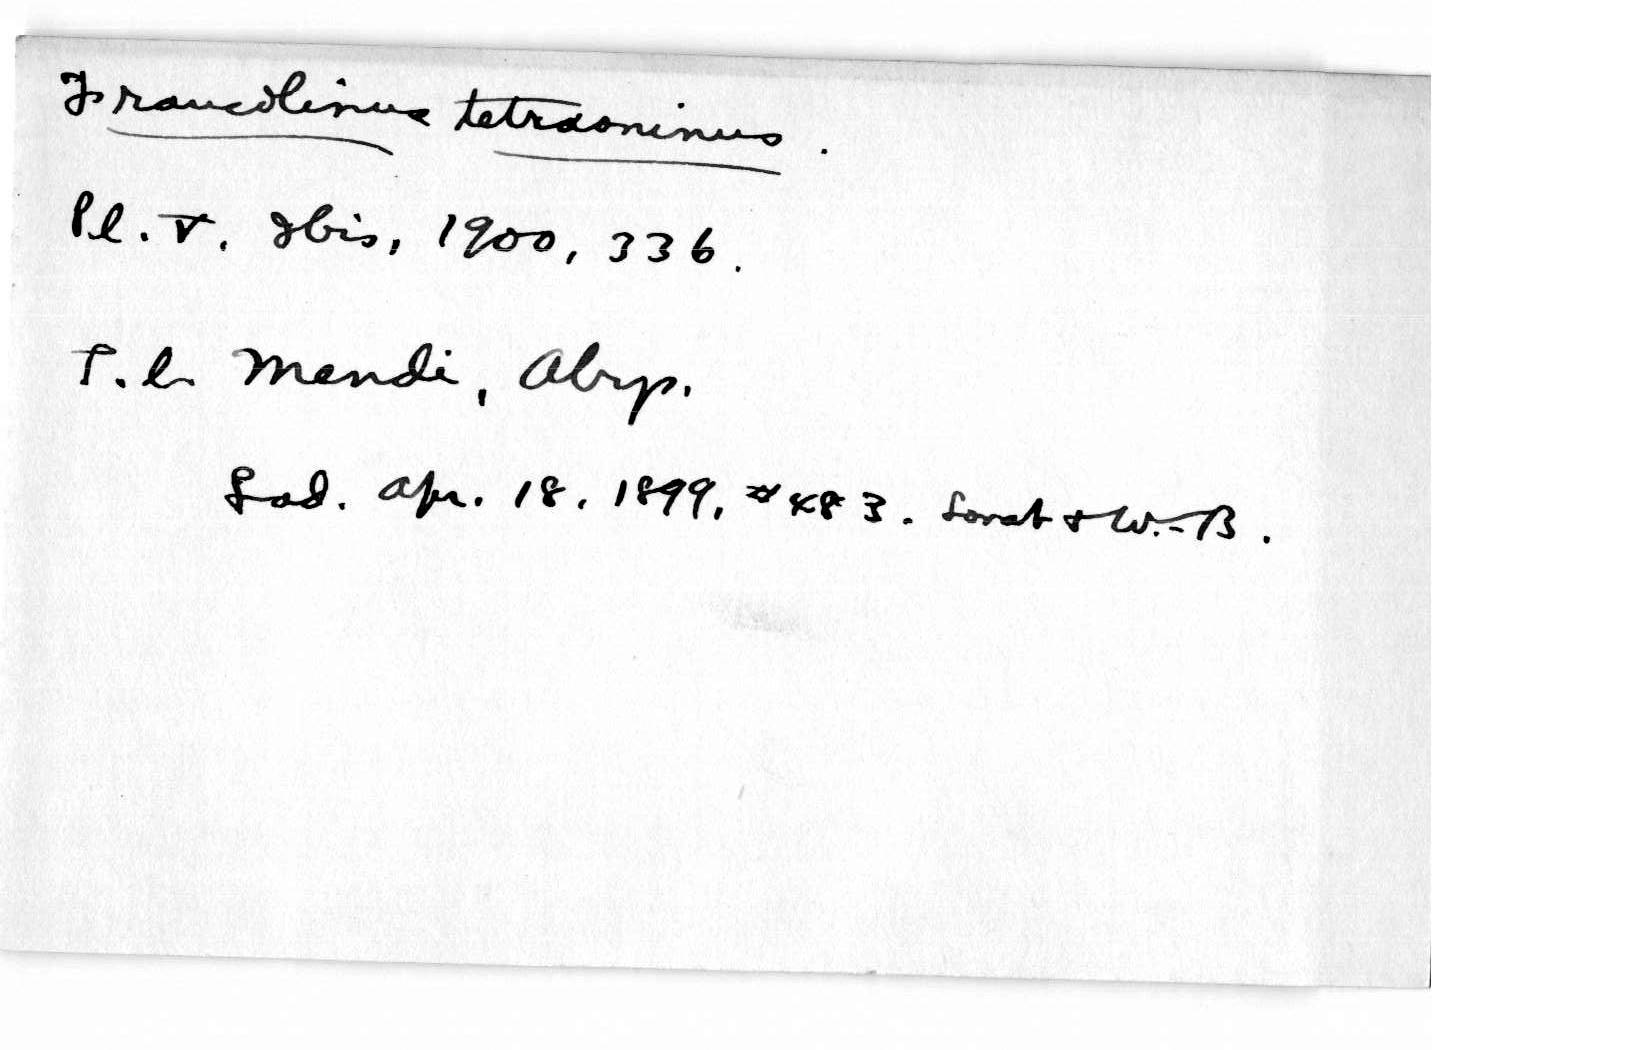 Francolinus tetraoninus.
Pl. V. Ibis, 1900, 336.
T.L. Mendi, Abyp.
Lad. Apr. 18, 1899, #483. Lovat & W.-B.